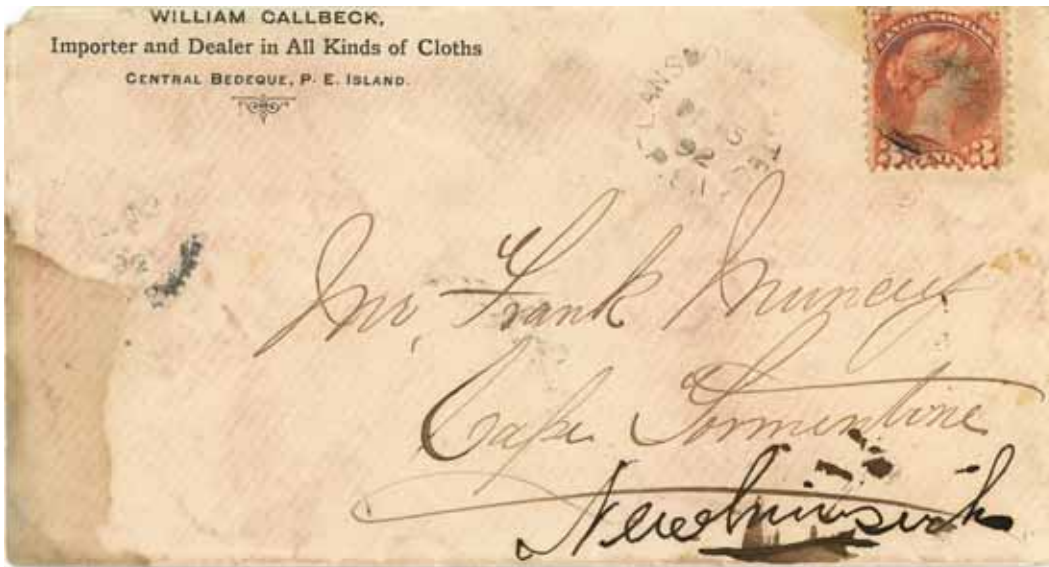 WILLIAM CALLBECK,
Importer and Dealer in All Kinds of Cloths
CENTRAL BEDEQUE, P. E. ISLAND.
CANADA POSTAGE
3 CENTS 3
92
Mr, Frank Muncey
Cape Tormentine
Newbrunswick